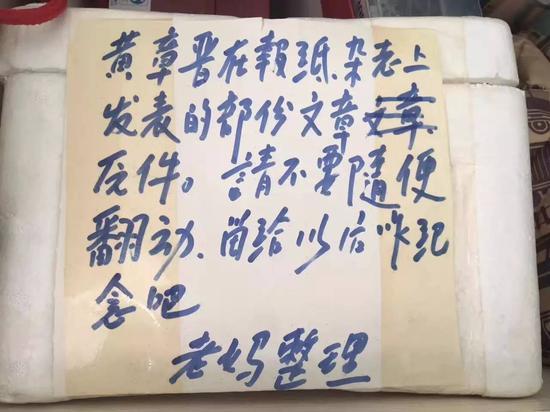 黄章晋在報纸.杂志上
发表的部份文章文章
原件。請不要隨便
翻动.留给以后作记
念吧
老妈整理